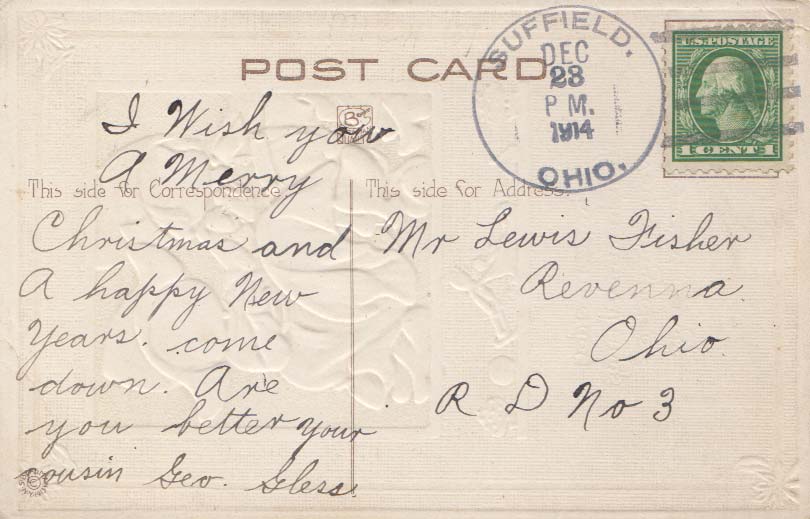 SUFFIELD.
DEC
23
P M.
1914
OHIO.
U.S. POSTAGE
1 CENT 1
POST CARD
B
This side for Correspondence
This side for Address.
I Wish you
A Merry
Christmas and
A happy New
Years. come
down. Are
you better your
cousin Geo. Gless
Mr Lewis Fisher
Revenna.
Ohio.
R D No 3